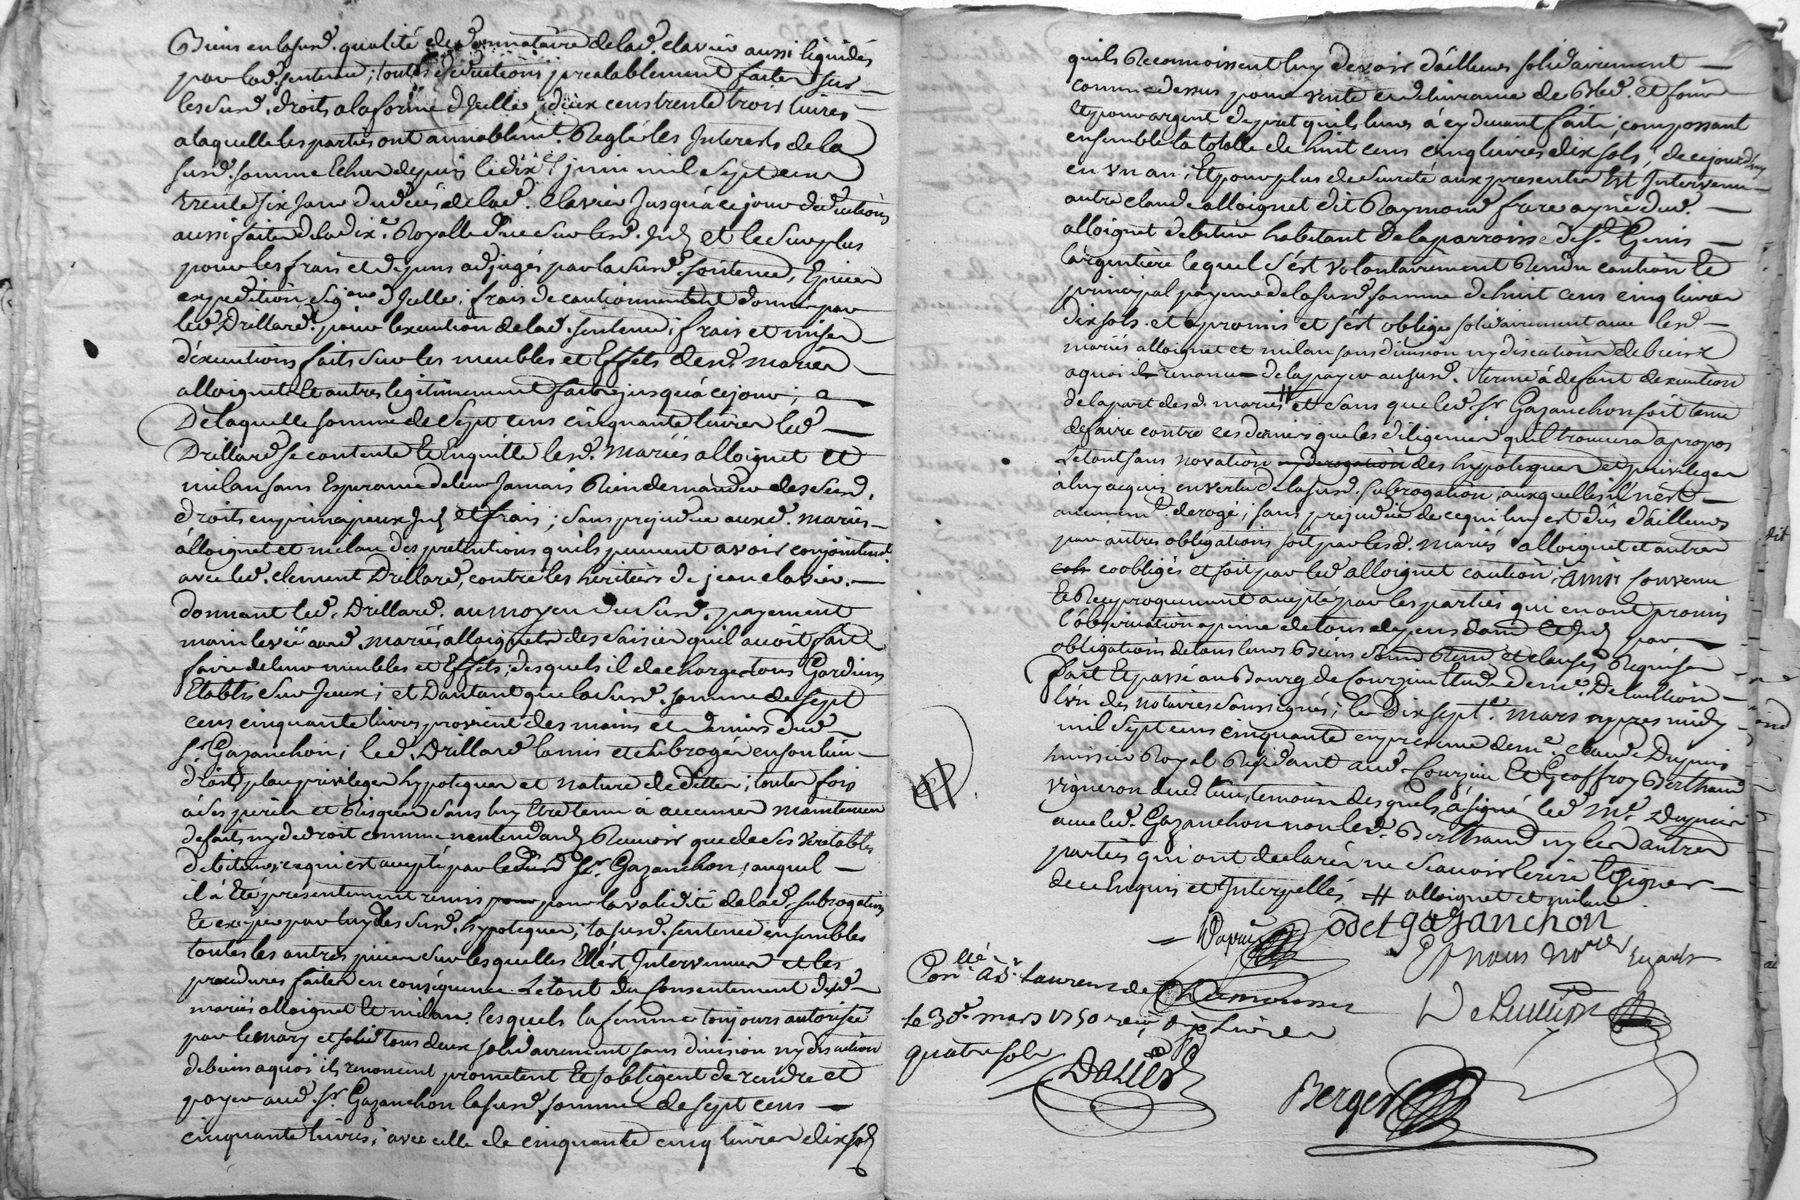 Biens en lasusd. qualité de donnataire de lad. clavier aussi liquidés
par lad. sentence; toutes deductions prealablement faites sur
les susd. droits a la forme d'Icelle; deux cens trente trois livres
a laquelle les parties ont amiablemt. Reglé les Interests de la
susd. somme Echus depuis le dixe. juin mil sept cens
trente six jour du décés de lad. Clavier Jusqu'à ce jour déductions
aussi faites de la dixe. Royalle düe sur lesd. Ints et le surplus
pour les frais et dépens adjugés par la susd. sentence, Epices
expedition, signon d'Icelle; frais de cautionnement donné par
led. Drillard, pour lexecution de lad. sentence; frais et mises
d'éxécutions faits sur les meubles et Effets desd. mariés
alloignet Et autres legitimement faits jusqu'à ce jour;
De laquelle somme de sept cens cinquante livres led.
Drillard se contente Et en quitte lesd. mariés alloignet Et
milan sans Esperance de leur Jamais Rien demander des susd.
droits en principaux Ints et frais; sans prejudice auxd. mariés
alloignet et milan des pretentions quils peuvent avoir conjointemt.
avec led. clement Drillard, contre les héritiers de jean clavier.
donnant led. Drillard. au moyen du susd. payement
main levée auxd. mariés alloignet des saisies quil avoit fait
faire de leur meubles et Effets; desquels il décharge tous Gardiens
Etablis sur Iceux; et Dautant que la susd. somme de sept
cens cinquante livres provient des mains et deniers dud.
sr. Gazanchon; led. Drillard la mis et subrogé en son lieu
droit, place privileges hypoteques et nature de dette; toutes fois
à ses perils et Risques sans luy Etre tenu à aucune maintenue
de fait, ny de droit comme n'entendant Recevoir que de ses veritables
debiteurs; ce qui est accepté par led. sr. Gazanchon; auquel
il à Eté presentement remis pour pour la validité de lad. subrogation
Et exiger par luy des susd. hypoteques, la susd. sentence ensembles
toutes les autres pieces sur lesquelles Elle est Intervenüe et les
procedures faites en conséquence. Le tout du consentement desd.
mariés alloignet Et milan lesquels la femme toujours autorisée
par le mary et solid. tous deux solidairement sans division ny discution
de biens a quoi ils renoncent promettent Et s'obligent de rendre et
payer aud. sr. Gazanchon la susd. somme de sept cens
cinquante livres; avec celle de cinquante cinq livres dix sols
quils Reconnoissent luy devoir d'ailleurs solidairement
comme dessus pour vente et delivrance de Bled. et foin
Et pour argent de pret quils leurs à cy devant fait; composant
ensemble la totalle de huit cens cinq livres dix sols, de ce jourdhuy
en un an; Et pour plus de sureté aux presentes Est Intervenu
autre claude alloignet dit Raymond frere ayné dud.
alloignet debiteur habitant de la parroisse de st. Genis
l'argentière lequel s'est volontairement Rendu caution Et
principal payeur de la susd. somme de huit cens cinq livres
dix sols. et a promis et s'est obligé solidairement avec lesd.
mariés alloignet et milan sans division ny discution de biens
a quoi il renonce de la payer au susd. terme à defaut dexecution
de la part desd. mariés # et sans que led. sr Gazanchon soit tenu
de faire contre ces derniers que les diligences quil trouvera a propos
Le tout sans novation ny derogation des hypoteques et privileges
à luy acquis en vertu de la susd. subrogation, auxquelles il n'est
aucunemt. derogé; sans prejudice de ce qui luy est dûs d'ailleurs
par autres obligations soit par lesd. mariés alloignet et autres
coobligés et soit par led. alloignet caution, ainsi convenu
Et Reciproquement accepté par les parties qui en ont promis
l'observation a peine de tous depens dom. et Ints par
obligations de tous leurs Biens soumd. Renond. et clauses Requises
fait Et passé au Bourg de Courzieu Etude de me. Delullion
l'un des notaires soussignés; le Dix septe. mars apres midy
mil sept cens cinquante en presence de me. claude Dupuis
huissier Royal Residant aud. Courzieu Et Geoffroy Berthaud
vigneron dud. lieu, temoins desquels à signé led. Me. Dupuis
avec led. Gazanchon non led. Berthaud ny les autres
parties qui ont declarés ne sçavoir Ecrire Et signer
de ce Enquis et Interpellés. # alloignet et milan
Dupuis odet gazanchon
Et nous Nores
Conllé. à St. Laurens de Chamousset
Delullion
le 30e. mars 1750 reçu
quatre sols
Dalier
Berger